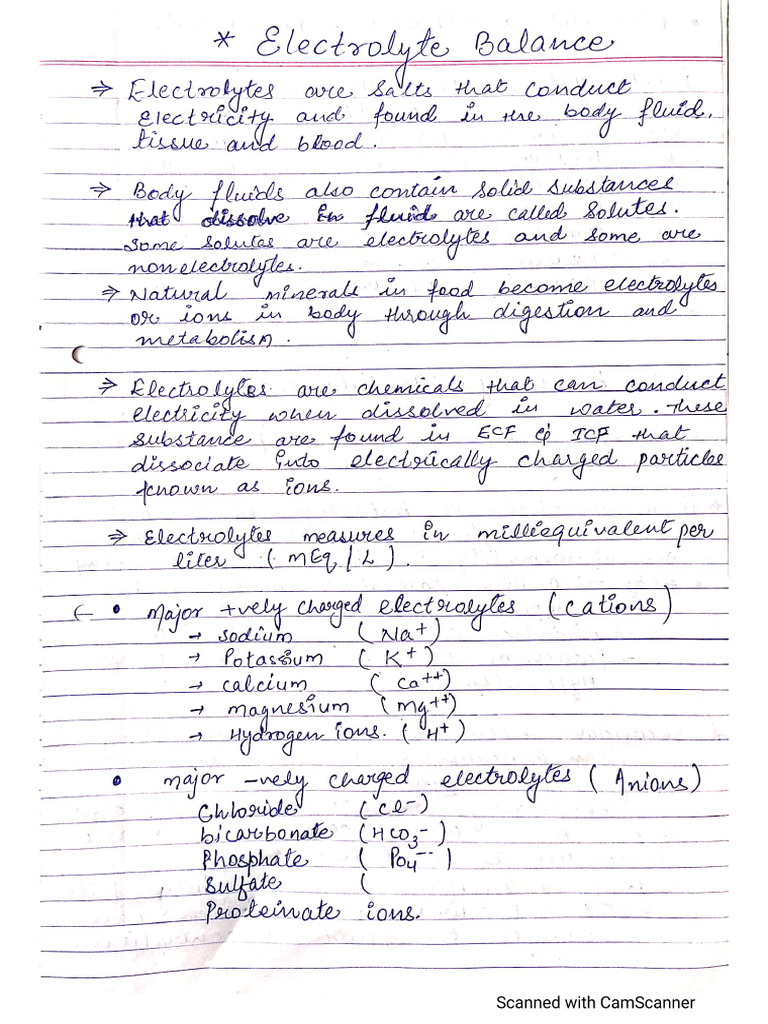 * Electrolyte Balance
⇒ Electrolytes are salts that conduct
electricity and found in the body fluid,
tissue and blood.
⇒ Body fluids also contain solid substances
that dissolve in fluid are called solutes.
Some solutes are electrolytes and some are
nonelectrolytes.
⇒ Natural minerals in food become electrolytes
or ions in body through digestion and
metabolism.
⇒ Electrolytes are chemicals that can conduct
electricity when dissolved in water. These
substance are found in ECF & ICF that
dissociate into electrically charged particles
known as ions.
⇒ Electrolytes measures in milliequivalent per
liter (mEq/L).
← • Major +vely charged electrolytes (Cations)
→ Sodium (Na+)
→ Potassium (K+)
→ calcium (Ca++)
→ magnesium (Mg++)
→ Hydrogen ions. (H+)
• major -vely charged electrolytes (Anions)
Chloride (Cl-)
bicarbonate (HCO3-)
Phosphate (Po4--)
Sulfate (
Proteinate ions.
Scanned with CamScanner